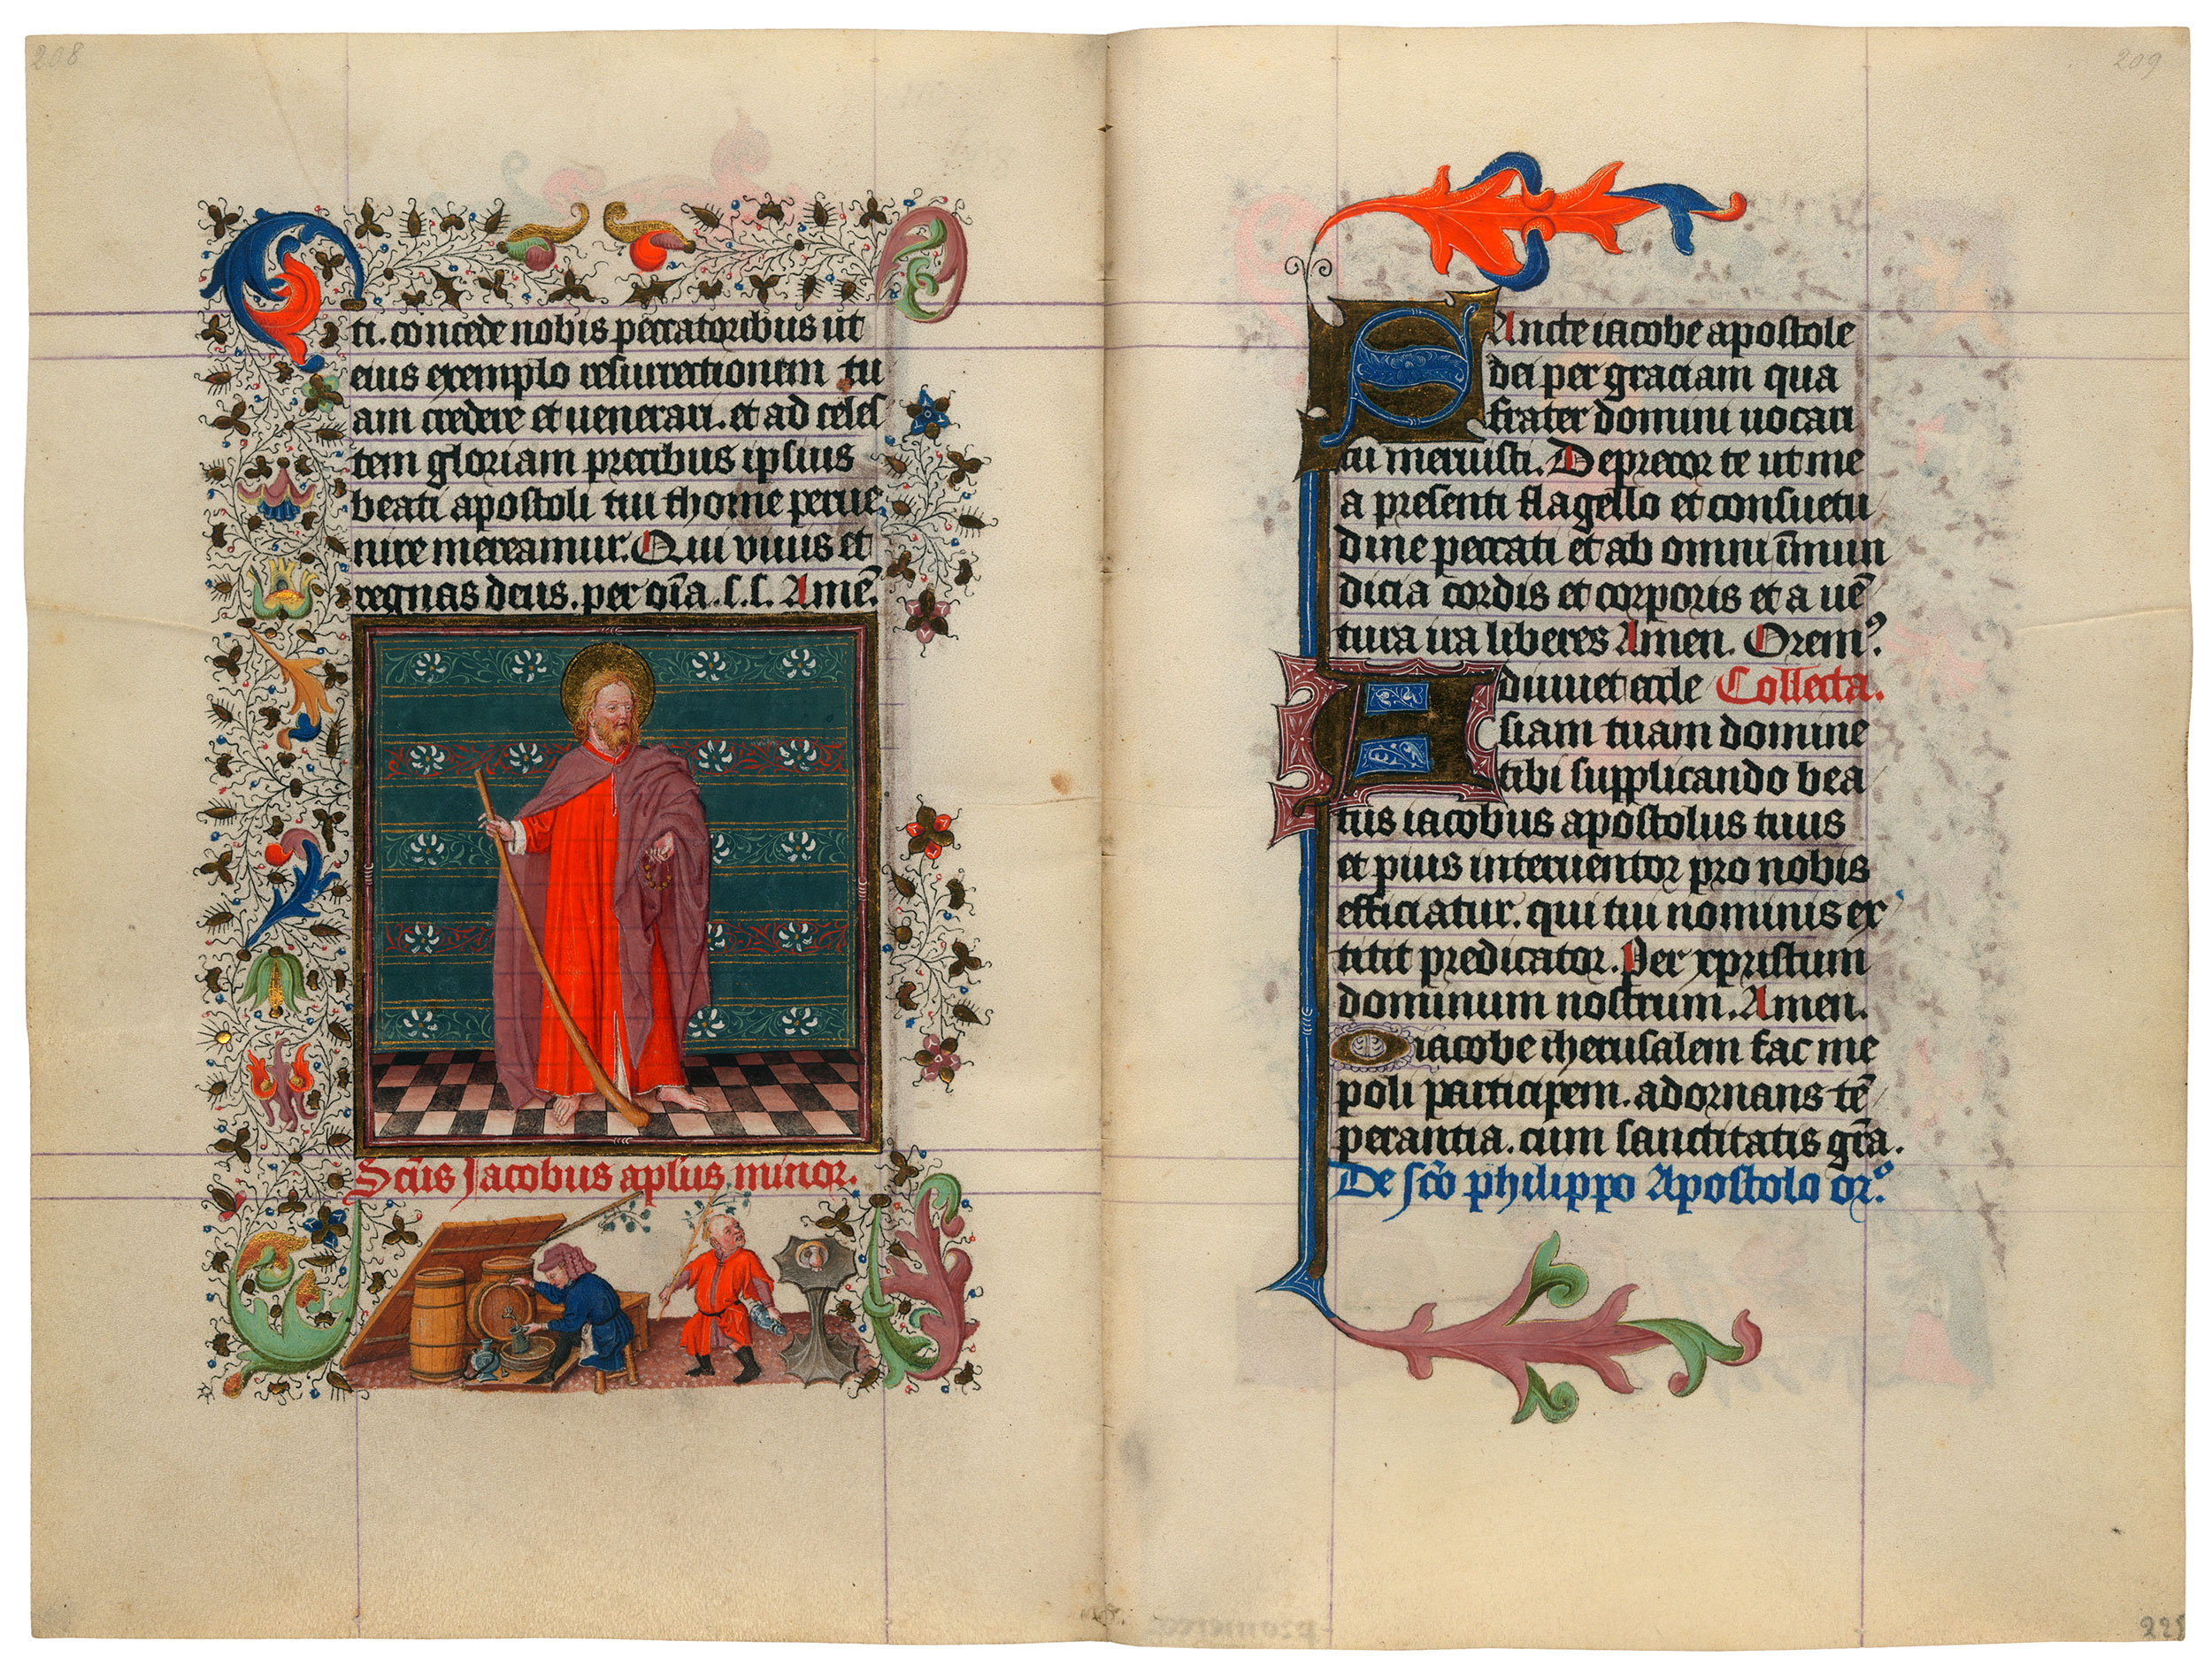 208
ti. concede nobis peccatoribus ut
eius exemplo resurrectionem tu
am credere et uenerari. et ad celes
tem gloriam precibus ipsius
beati apostoli tui thome perue
nire mereamur. Qui viuis et
regnas deus. per oīa. s. s. Amē.
Scūs Jacobus aplūs minor.
209
SAncte iacobe apostole
dei per graciam qua
frater domini uocari
tu meruisti. Deprecor te ut me
a presenti flagello et consuetu
dine peccati et ab omni īmun
dicia cordis et corporis et a uē
tura ira liberes Amen. Oremꝰ.
Adiuuet eccle Collecta.
siam tuam domine
tibi supplicando bea
tus iacobus apostolus tuus
et pius interuentor pro nobis
efficiatur. qui tui nominis ex
titit predicator. Per xpristum
dominum nostrum. Amen.
O iacobe iherusalem fac me
poli participem. adornans tē
perantia. cum sanctitatis grā.
De scō philippo Apostolo orº.